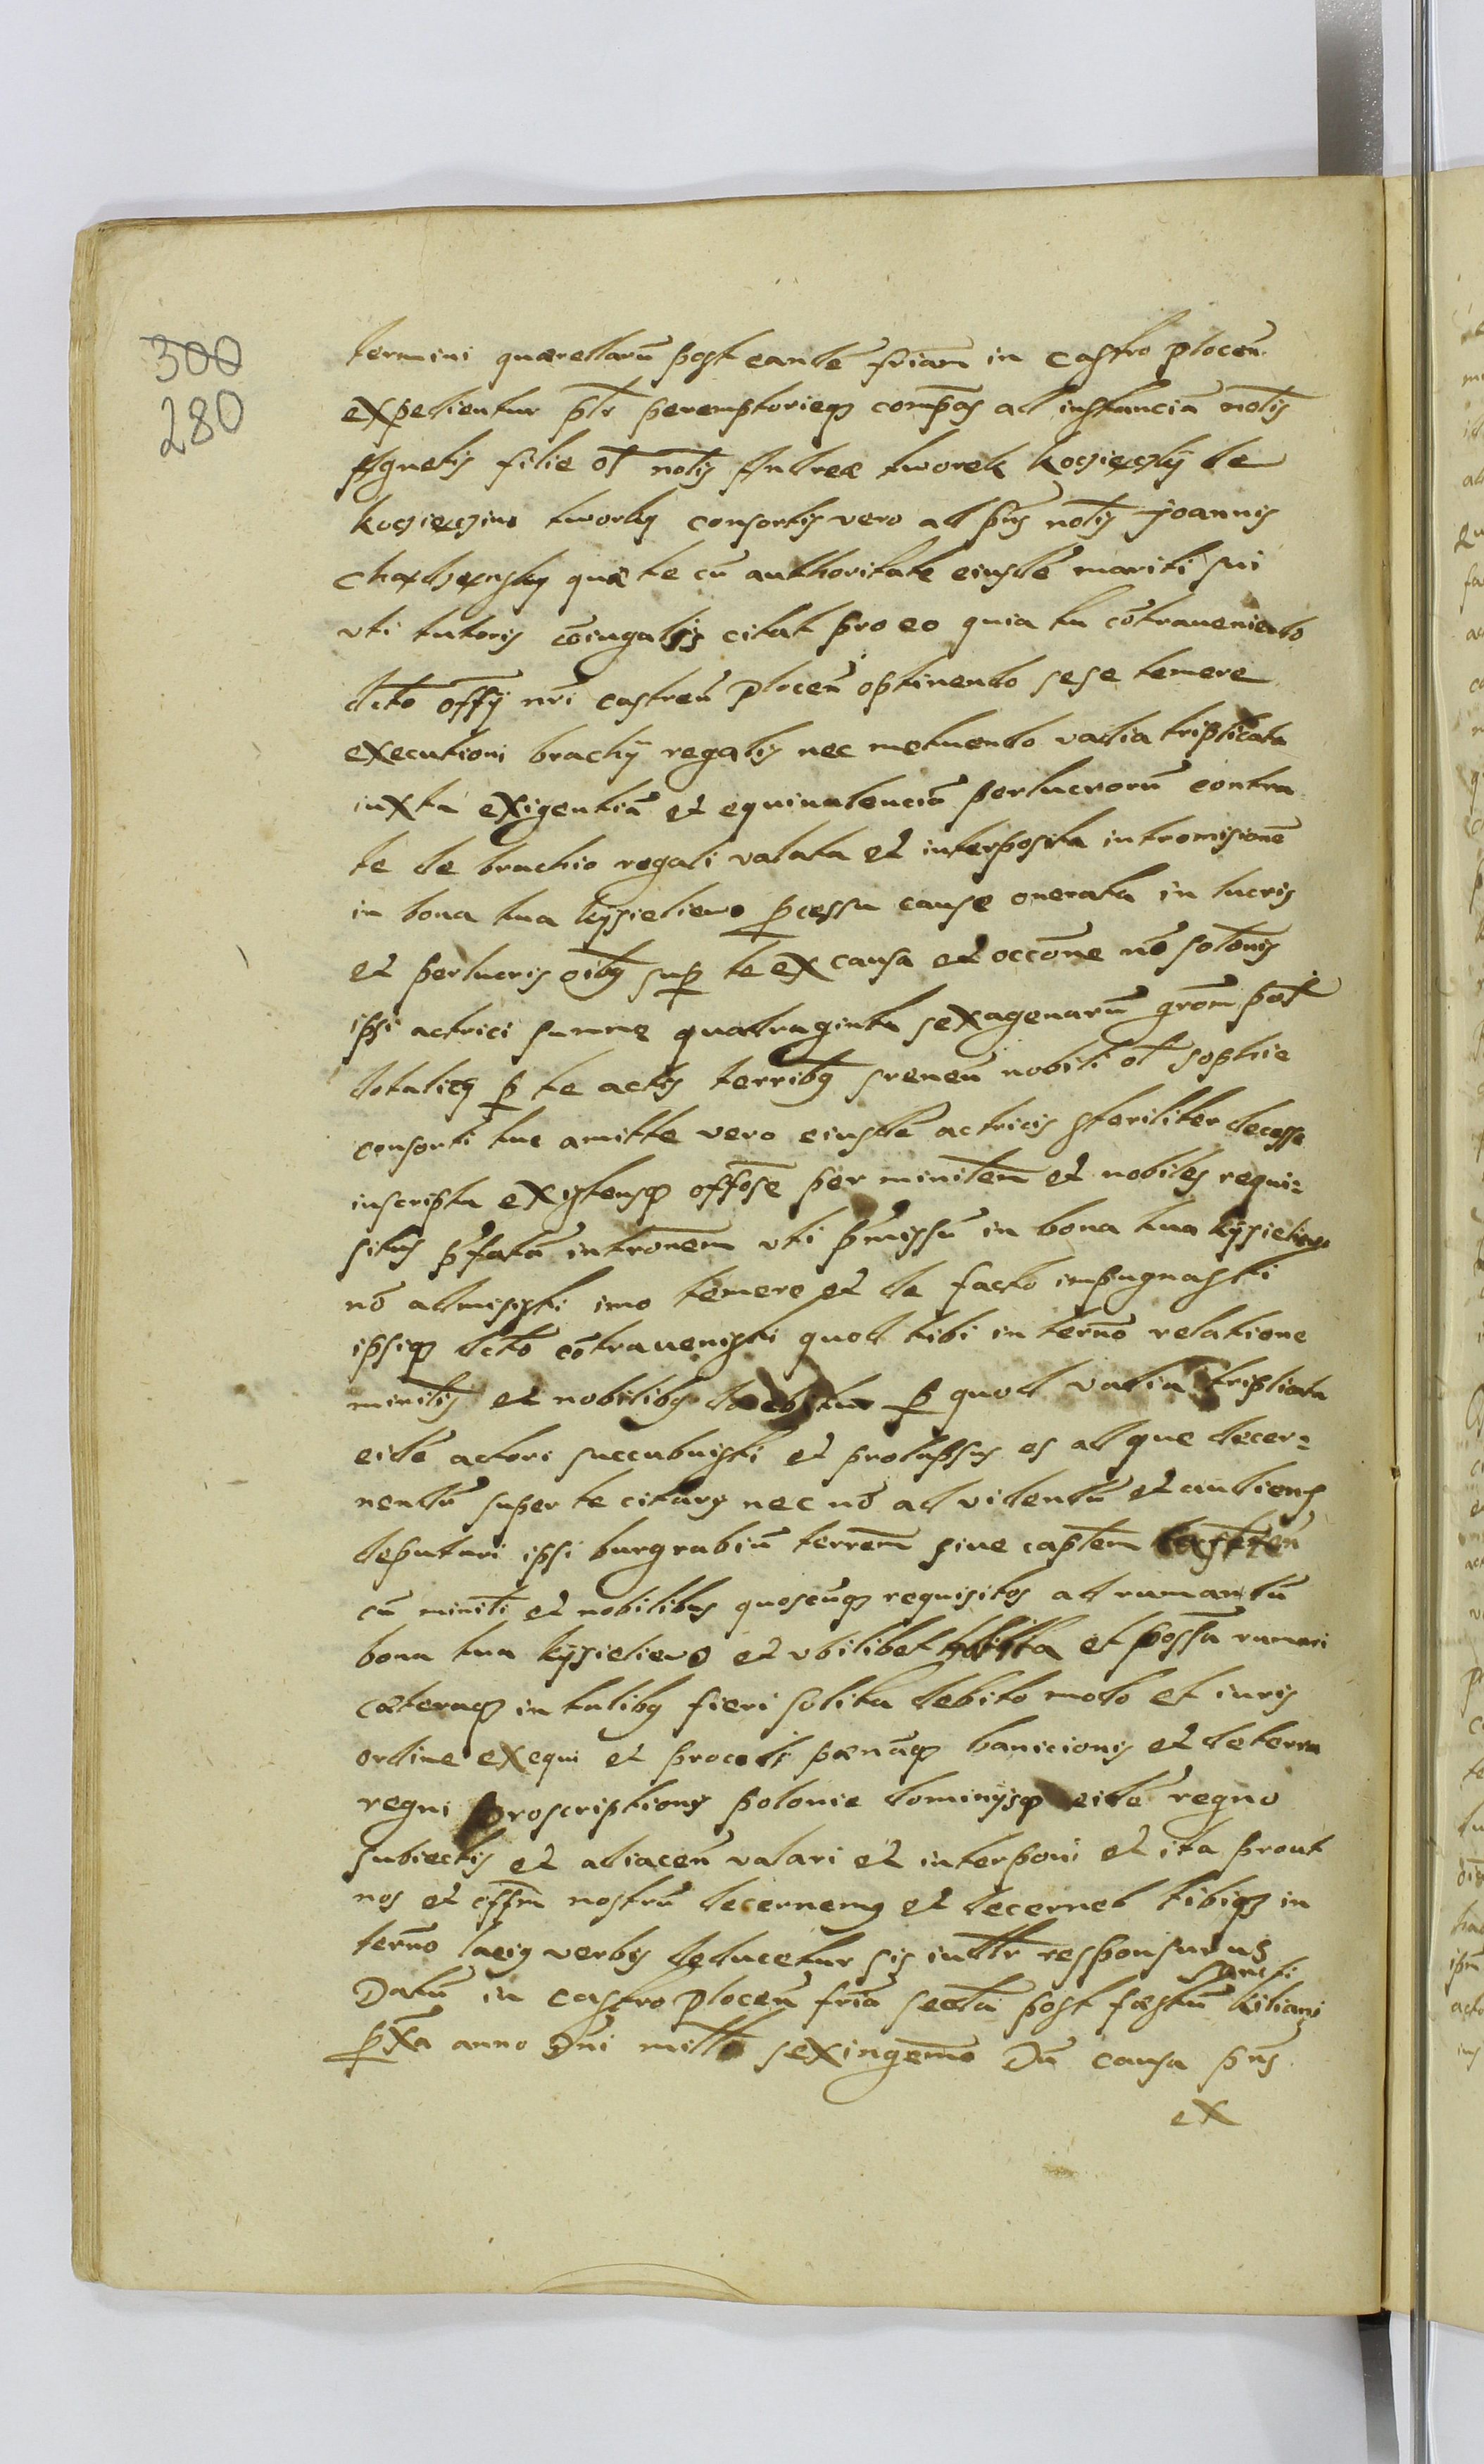 300
280
termini quærellarū post eandē friam in castro plocen̄
expedientur pltr peremptorieq3 compas ad instanciā nōlis
Agnetis filie ol nōlis Andreæ tworek
tworky consortis vero ad pns nōlis Joannis
quæ te cū authoritate eiusdē mariti sui
vti tutoris cōiugalis citat pro eo quia tu cōtraueniendo
dcto offy nri castren̄ plocen̄ optinendo sese temere
executioni brachy regalis nec metuendo vadia triplicata
iuxta exigentiā et equiualenciā perlucrorū contra
te de brachio regali valata et interposita intromisionē
in bona tua kysielewo pcessu cause onerata in lucris
et perlucris oibs sup te ex causa et occōne nō solōnis
ipsi actrici summe quadraginta sexagenarū grom pot
dotalics p te actis terribs sremen̄ nobili ol sophie
consorti tue amitte vero eiusdē actricis steriliter decesse
inscripta existensq3 per minitem et nobiles requi=
situs pfatā intronem vti pmissū in bona tua kysielewo
nō admisisti imo temere et de facto impugnasti
ipsiq3 dcto cōtrauenisti quod tibi in ternō relatione
minitis et nobilibs p quod vadia triplicata
eidē actori succubuisti et prolapsus es ad que decer=
nendū super te citaris nec nō ad videndū et audiens
deputari ipsi burgrabiū terrem siue captem castren̄
cū miniti et nobilibus quoscūq3 requisitos ad rumandū
bona tua kysielewo et vbilibet et possā rumari
cæteraq3 in talibs fieri solita debito modo et iuris
ordine exequi et procedi pænāq3 banicionis et de terra
regni proscriptionis polonie dominysq3 eidē regno
subiectis et adiacen̄ valari et interponi et ita prout
nos et offm nostrū decernems et decernet tibiq3 in
ternō verbis deducetur sis iudtr responsurus
Datū in castro plocen̄ friā secda post fæstū sancti kiliani
pxa anno Dni mille sexingemo Dū causa pns
ex